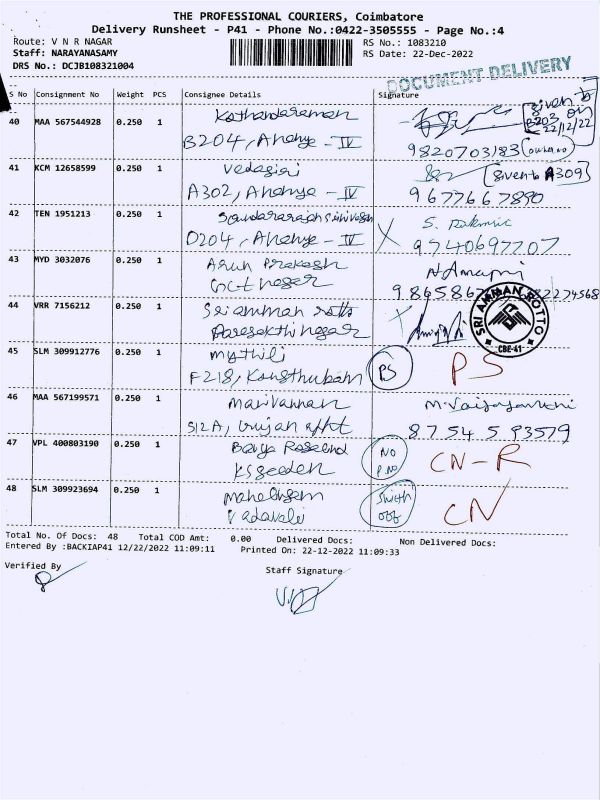 THE PROFESSIONAL COURIERS, Coimbatore
Delivery Runsheet - P41 - Phone No.:0422-3505555 - Page No.:4
Route: V N R NAGAR
RS No.: 1083210
Staff: NARAYANASAMY
RS Date: 22-Dec-2022
DRS No.: DCJB108321004
DOCUMENT DELIVERY
S No Consignment No Weight PCS Consignee Details Signature
40 MAA 567544928 0.250 1 Kothandaraman
given to B203 on 22/12/22
B204, Ananya - IV 9820703183
41 KCM 12658599 0.250 1 Vedagiri given to A309
A302, Ananya - IV 9677667890
42 TEN 1951213 0.250 1
D204, Ananya - IV 9740697707
43 MYD 3032076 0.250 1 Arun Prakash
GCT nagar
44 VRR 7156212 0.250 1 Sri amman rotto
Parasakthi nagar
SRI AMMAN ROTTO
CBE-41
45 SLM 309912776 0.250 1 Mythili PS PS
F218, Kousthubam
46 MAA 567199571 0.250 1 Marivannan
S12A, 87545 93579
47 VPL 400803190 0.250 1 NO P.NO CN-R
48 SLM 309923694 0.250 1 Switch off CN
Vadavalli
Total No. Of Docs: 48 Total COD Amt: 0.00 Delivered Docs: Non Delivered Docs:
Entered By :BACKIAP41 12/22/2022 11:09:11 Printed On: 22-12-2022 11:09:33
Verified By
Staff Signature